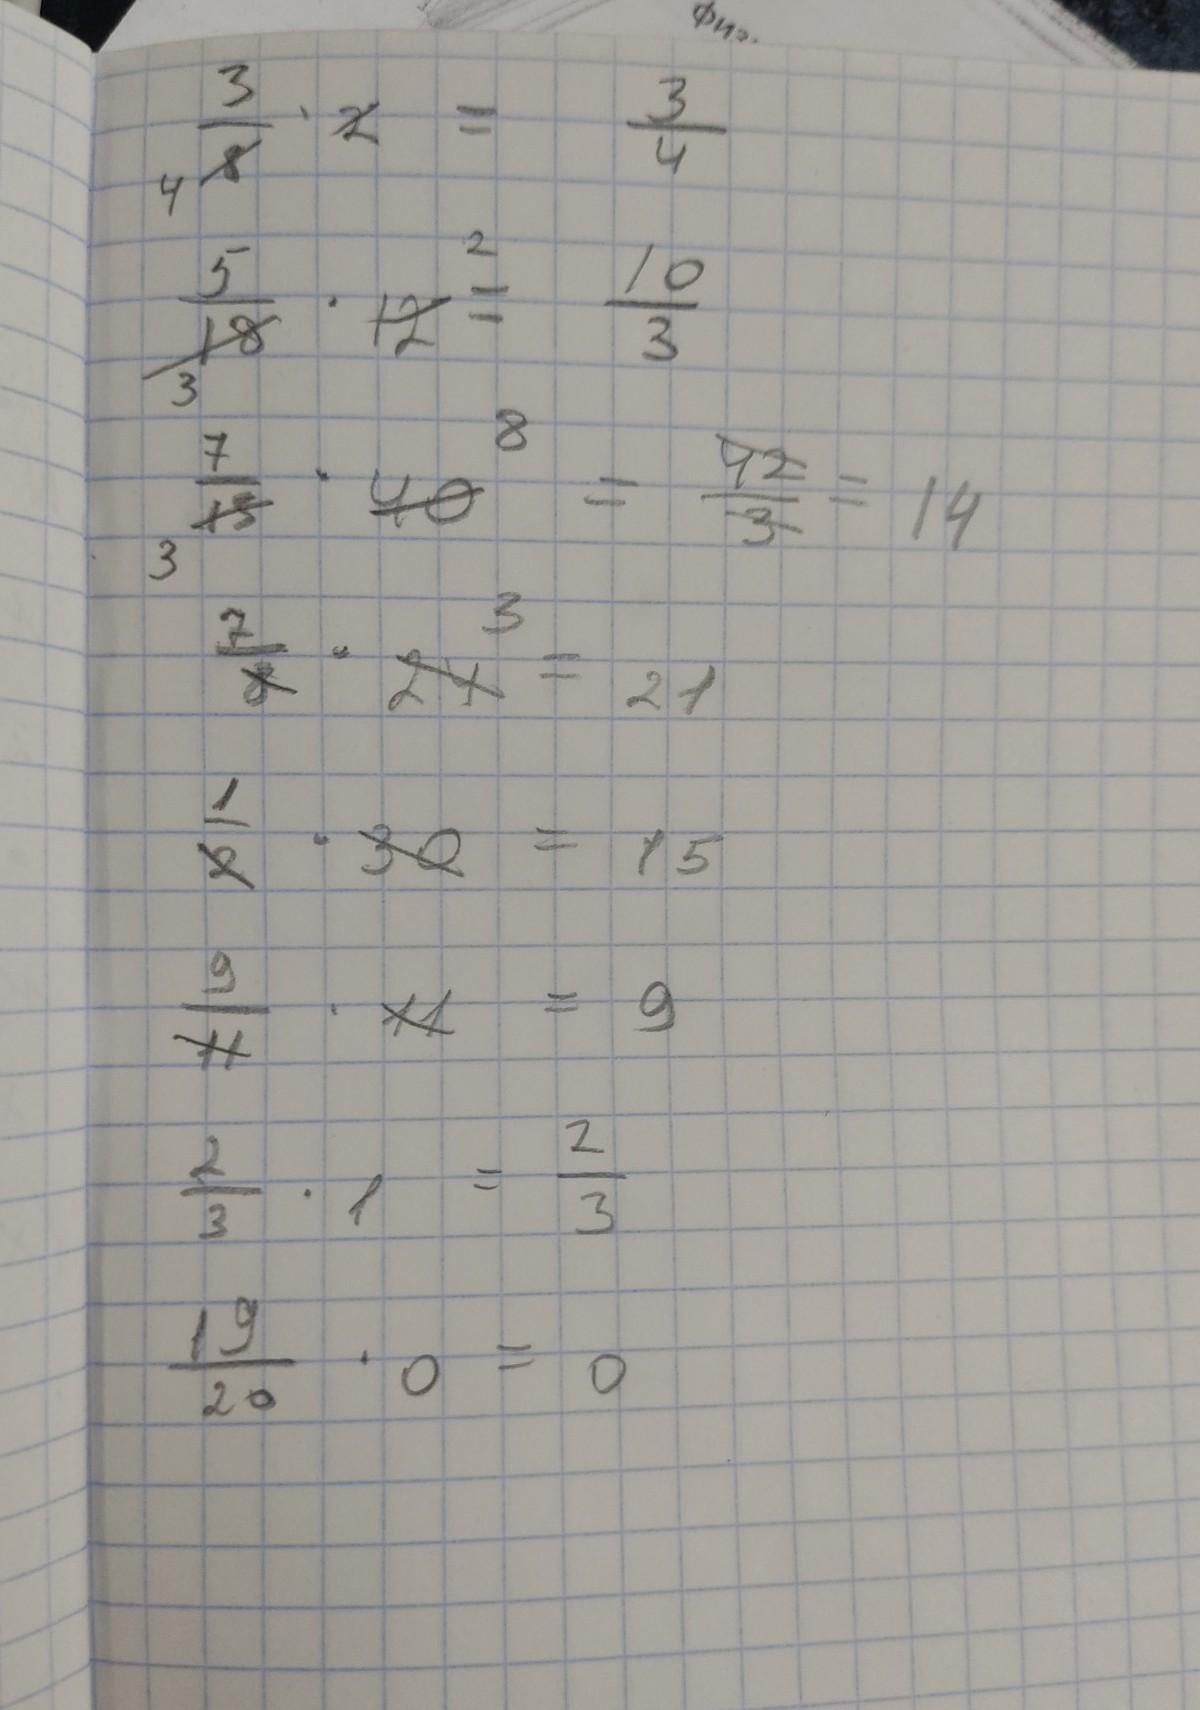 Физ.
3/8 · 2 = 3/4
4
2
5/18 · 12 = 10/3
3
8
7/15 · 40 = 42/3 = 14
3
3
7/8 · 24 = 21
1/2 · 30 = 15
9/11 · 11 = 9
2/3 · 1 = 2/3
19/20 · 0 = 0